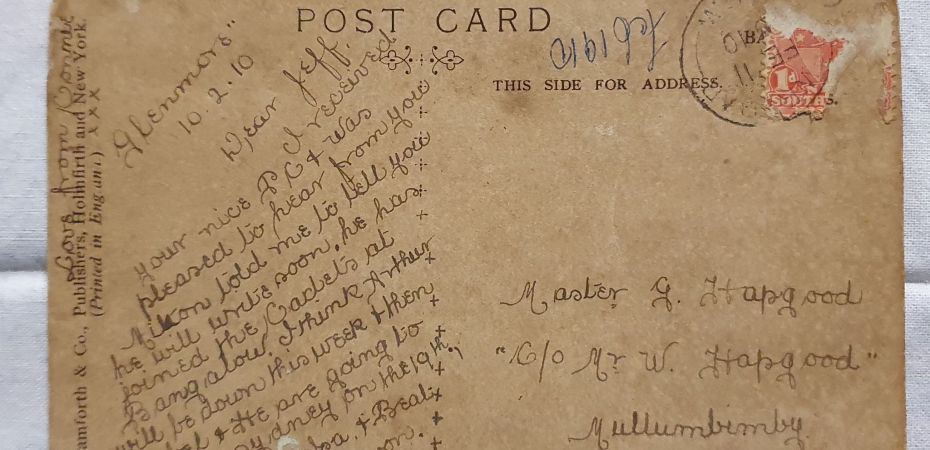 POST CARD
THIS SIDE FOR ADDRESS.
Feb 1910
1D
"Glenmore"
10.2.10
Dear Jeff.
I received
your nice P.C & was
pleased to hear from you
told me to tell you
he will write soon, he has
joined the Cadets at
Bangalow, I think Arthur
will be down this week & then
& He are going to
Sydney on the 19th,
& Beat
Love from
Master G. Hapgood
"C/o Mr W. Hapgood"
Mullumbimby
amforth & Co., Publishers, Holmfirth and New York.
(Printed in England)
x x x